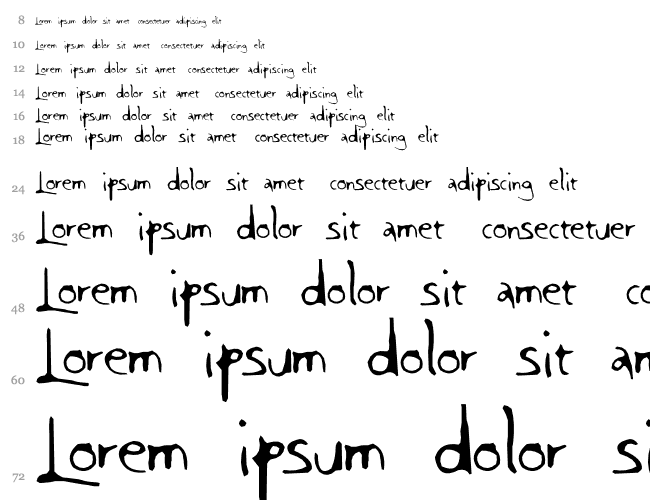 8 Lorem ipsum dolor sit amet consectetuer adipiscing elit
10 Lorem ipsum dolor sit amet consectetuer adipiscing elit
12 Lorem ipsum dolor sit amet consectetuer adipiscing elit
14 Lorem ipsum dolor sit amet consectetuer adipiscing elit
16 Lorem ipsum dolor sit amet consectetuer adipiscing elit
18 Lorem ipsum dolor sit amet consectetuer adipiscing elit
24 Lorem ipsum dolor sit amet consectetuer adipiscing elit
36 Lorem ipsum dolor sit amet consectetuer
48 Lorem ipsum dolor sit amet co
60 Lorem ipsum dolor sit am
72 Lorem ipsum dolor si